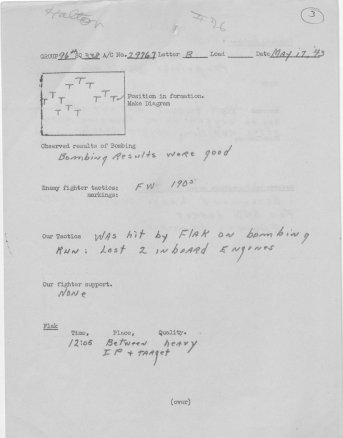 Halton
#36
3
GROUP 96th SQ 338 A/C No. 29767 Letter B Lead Date May 17, '43
Position in formation.
Make Diagram
Observed results of Bombing
Bombing Results were good
Enemy fighter tactics: FW 190s
markings:
Our Tactics WAS hit by FlAK on bombing
RUN: Lost 2 inboard ENgONes
Our fighter support.
NONe
Flak
Time, Place, Quality.
12:06 Between heavy
I.P + tArgeT
(over)